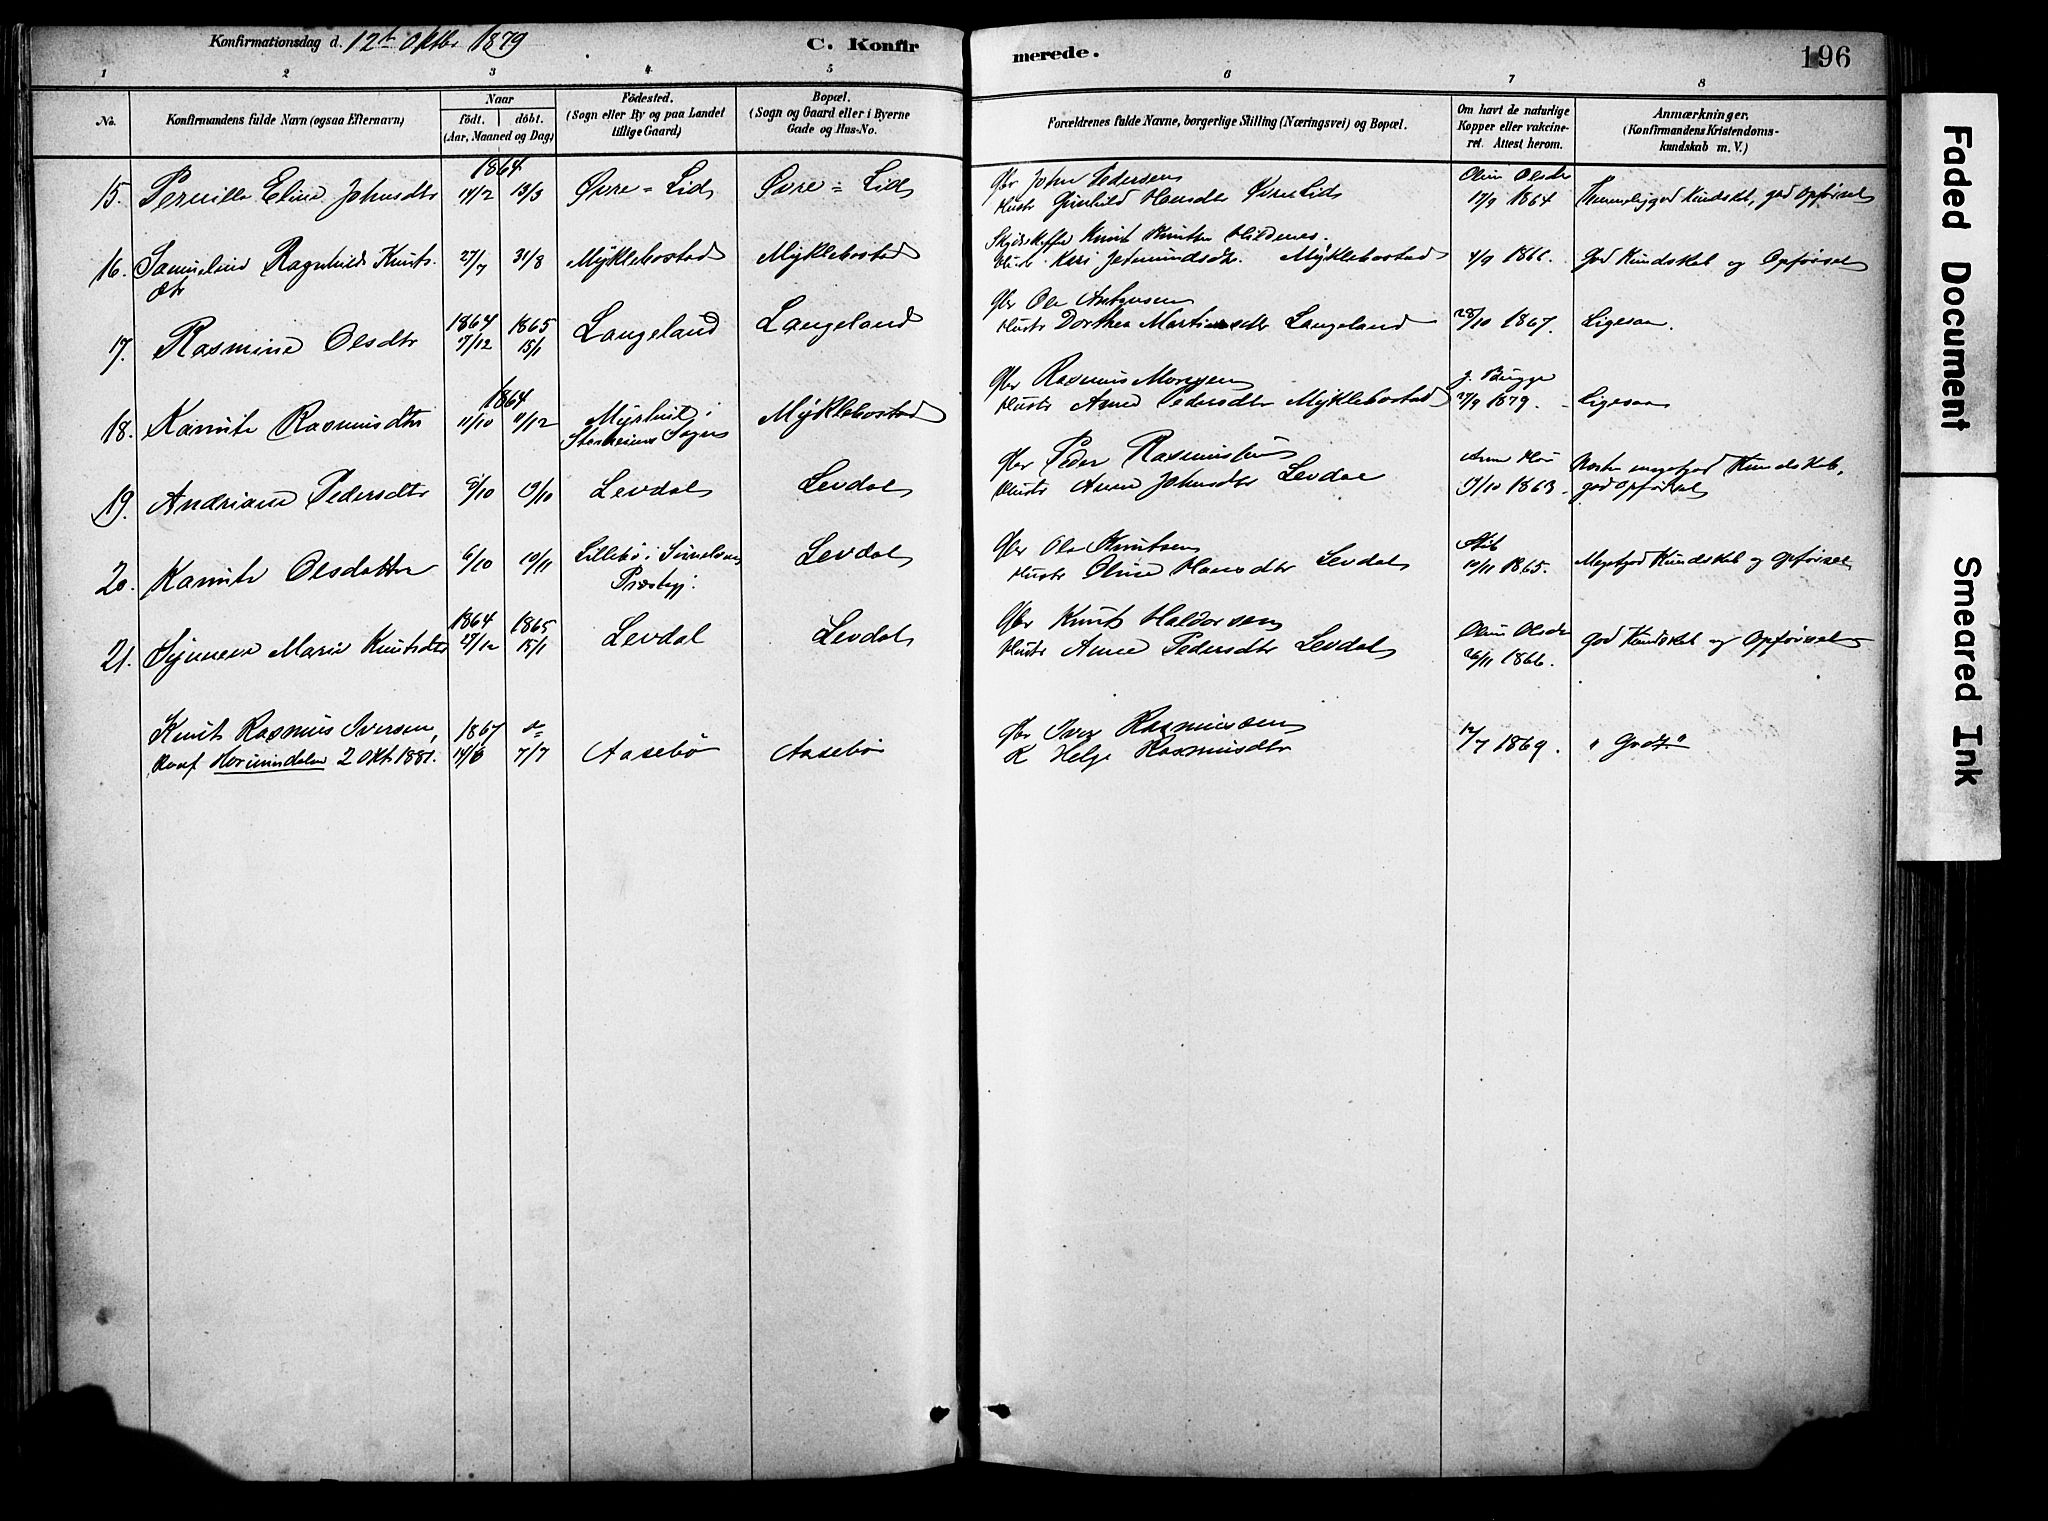 Konfirmationsdag d. 12te Oktbr 1879
C. Konfir
merede.
196
1 2 3 4 5 6 7 8
No.
Konfirmandens fulde Navn (ogsaa Efternavn)
Naar
födt. döbt.
(Aar, Maaned og Dag)
Födested.
(Sogn eller By og paa Landet
tillige Gaard)
Bopæl.
(Sogn og Gaard eller i Byerne
Gade og Hus-No.
Forældrenes fulde Navne, borgerlige Stilling (Næringsvei) og Bopæl.
Om havt de naturlige
Kopper eller vakcine-
ret. Attest herom.
Anmærkninger.
(Konfirmandens Kristendoms-
kundskab m. V.)
1864
15. Pernille Eline Johnsdtr 14/2 13/3 Øvre = Lid Øvre = Lid
Gbr John Pedersen
Hustr Hansdtr Øvre Lid
Oline Olsdr
17/9 1864
god Opførsel
16. Ragnhild Knuts.
dtr
27/7 31/8 Myklebostad Myklebostad
Knut Hildenes.
Kari Myklebostad
4/9 1866.
God Kundskab og Opførsel
17. Rasmine Olsdtr
1864 1865
7/12 15/1
Langeland Langeland
Gbr Ole
Hustr Dorthea Martinsdtr Langeland
28/10 1867.
Ligesaa.
1864
18. Rasmusdtr 11/10 11/12
i
Sogn
Myklebostad
Gbr Rasmus
Hustr Anne Pedersdtr Myklebostad
J. Bugge
27/9 1879.
Ligesaa
19. Andriane Pedersdtr 8/10 19/10 Levdal Levdal
Gbr Peder Rasmussen
Hustr Anne Johnsdtr Levdal
1/10 1863.
Næsten megetgod Kundskab,
god Opførsel
20. Olsdatter 6/10 19/11
Lillebö i
Præstegj.
Levdal
Gbr Ole Knutsen
Hustr Oline Hansdtr Levdal
10/11 1865.
Megetgod Kundskab og Opførsel
21. Synneve Marie Knutsdtr
1864 1865
27/12 15/1
Levdal Levdal
Gbr Knut Haldorsen
Hustr Anne Pedersdtr Levdal
Oline Olsdr
26/11 1866.
God Kundskab og Opførsel
Knut Rasmus Iversen,
Konf Hornindalen 2 Okt 1881.
1867
14/6 7/7
Aasebö Aasebö
Gbr Iver Rasmussen
K Helge Rasmusdtr
12/7 1869.
"Godt"
Faded Document
Smeared Ink